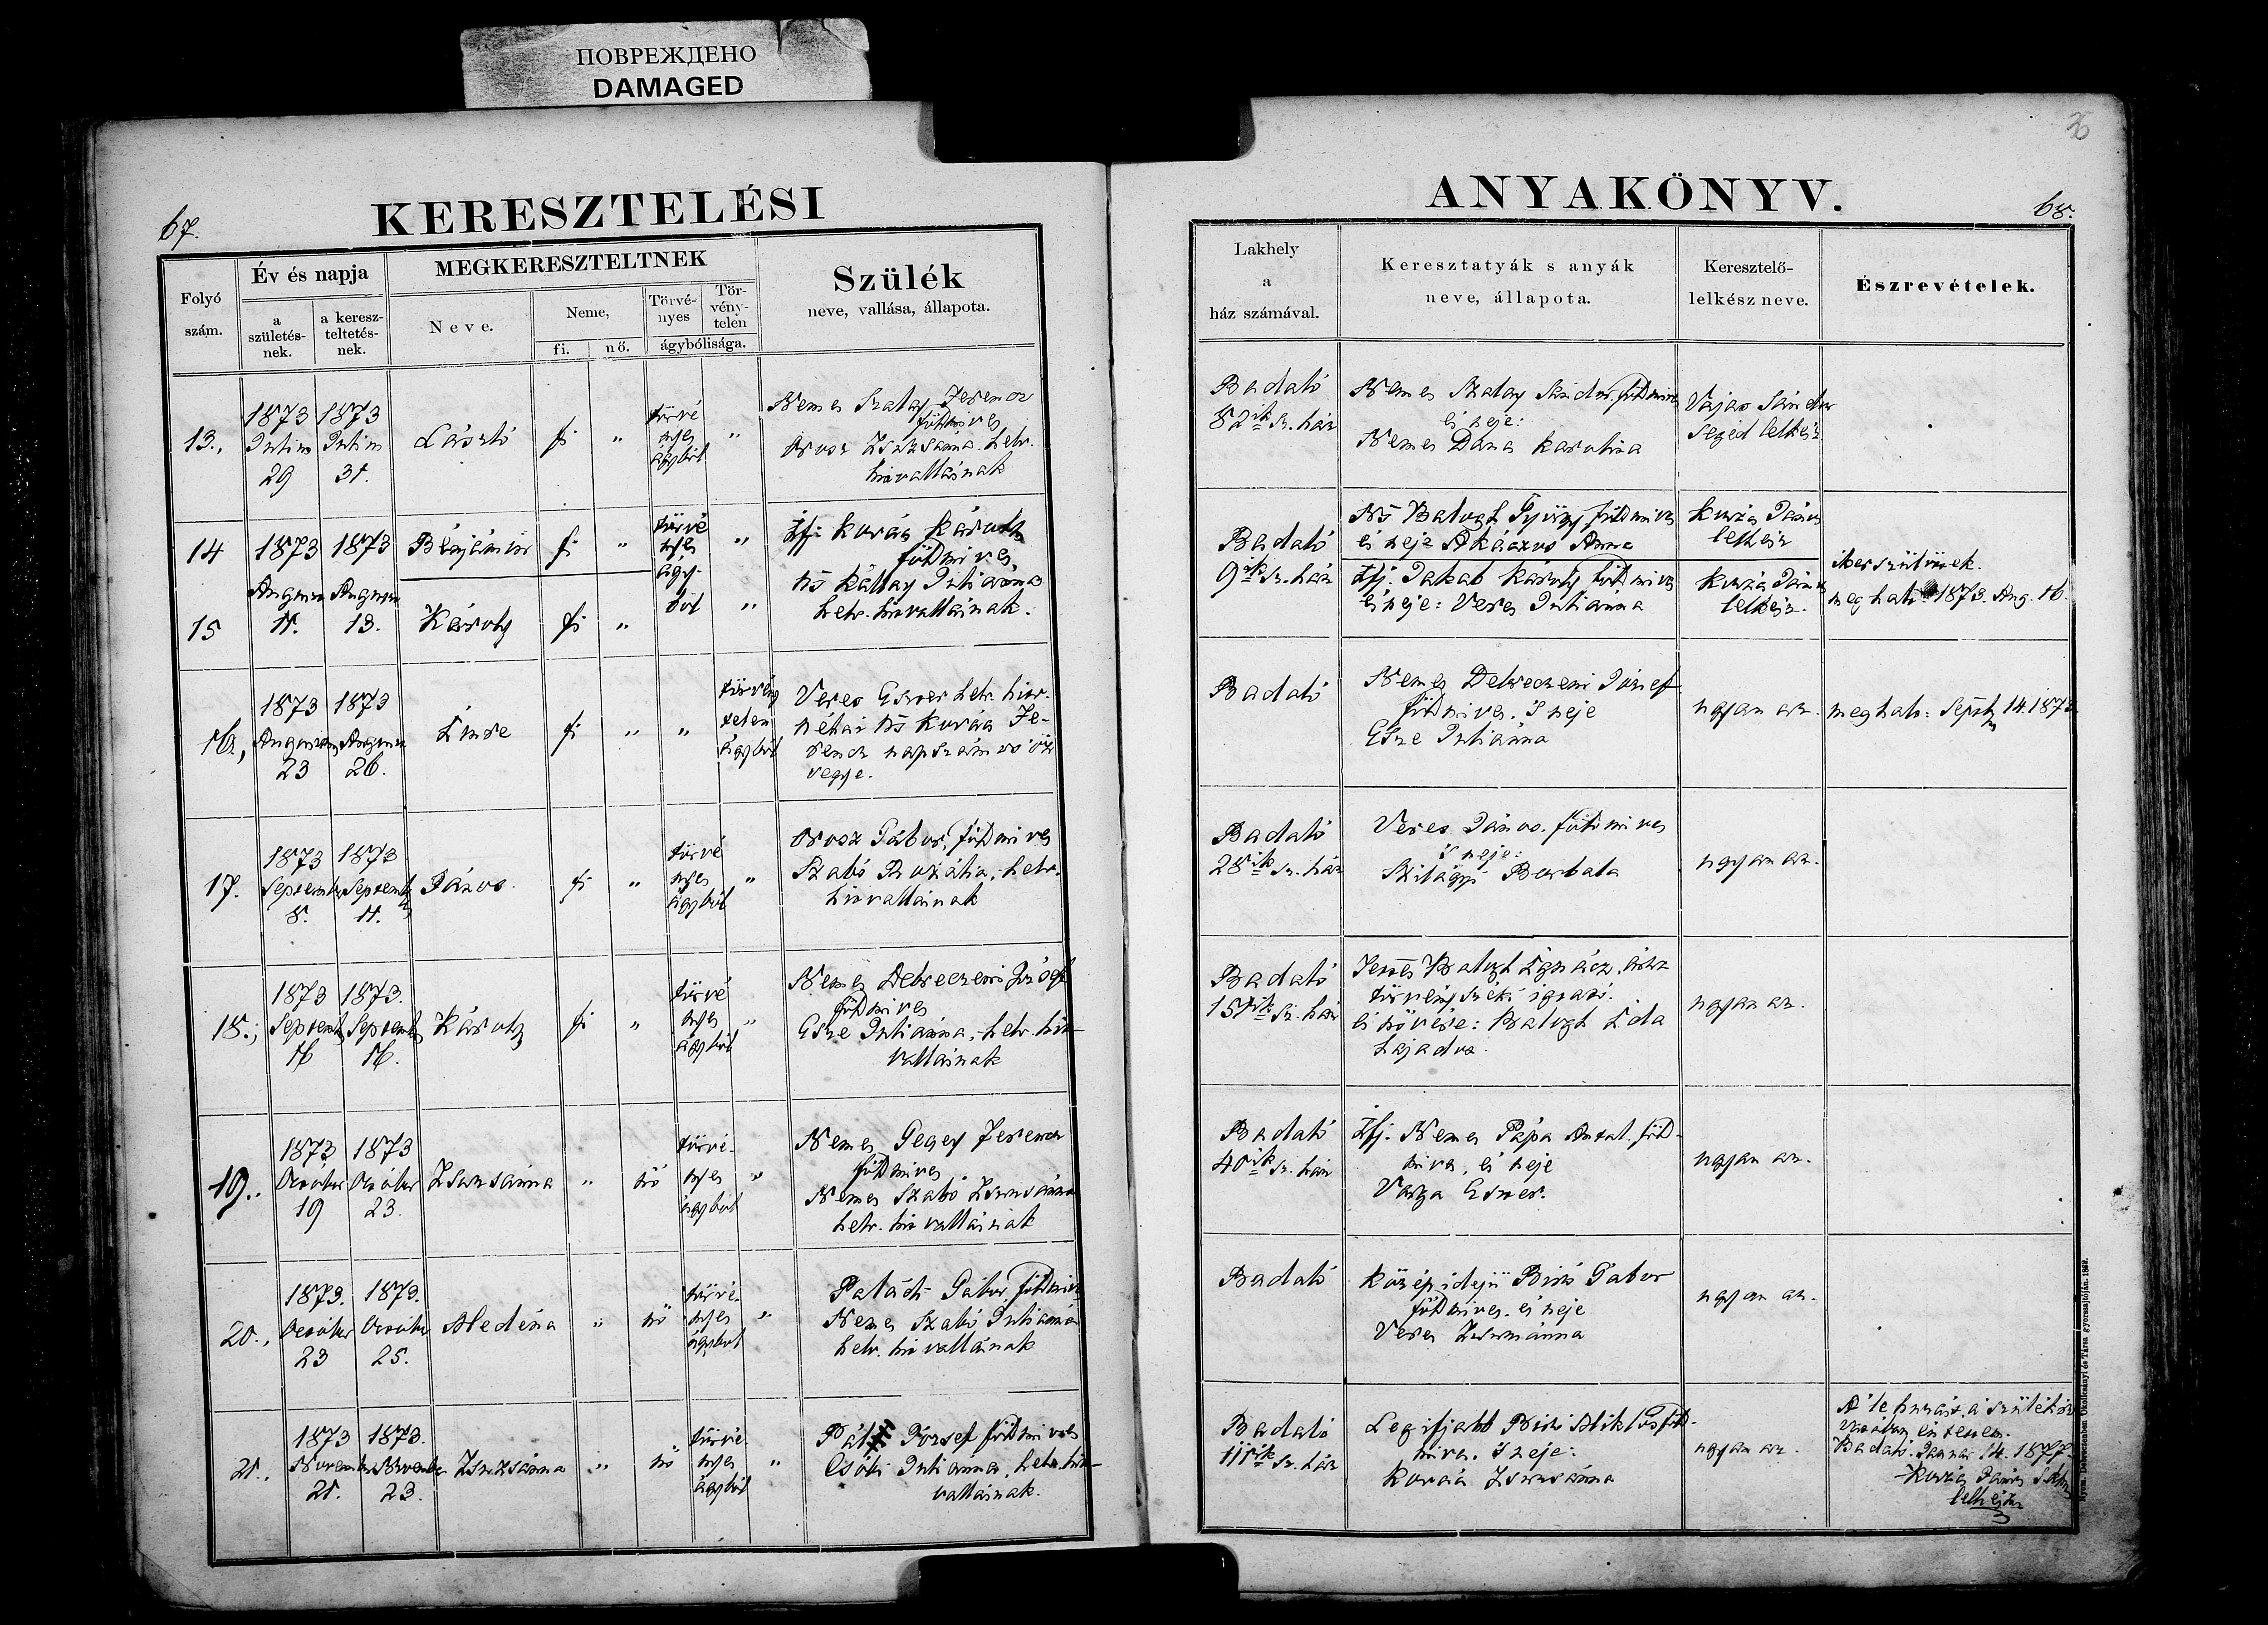 ПОВРЕЖДЕНО
DAMAGED
67.
KERESZTELÉSI
Folyó
szám.
Év és napja
a
születés-
nek.
a keresz-
teltetés-
nek.
MEGKERESZTELTNEK
Neve.
Neme,
fi.
nő.
Törvé-
nyes
Tör-
vény-
telen
ágybólisága.
Szülék
neve, vallása, állapota.
13., 1873 Julius 29 1873 Julius 31. László fi " törvé nyes ágyból "
Nemes Szalay Ferencz
földmives
Orosz Zsuzsánna helv.
hitvallásnak
14 1873 1873 Béjámin fi " törvé nyes ágy- "
Ifj. Kovács Károly
földmives
15 Augusz 11. Augusz 13. Károly fi " ból "
nš Kállay Juliánna
helv. hitvallásnak.
16., 1873 Augusztus 23 1873 Augusz 26. Imre fi " " törvény telen ágyból
Veres Eszter helv. hitv.
néhai nš Kovács Fe-
rencz napszámos öz
vegye.
17. 1873 Septemb 8. 1873 Septemb 11. János fi " törvé nyes ágyból "
Orosz Gábor, földmives
Szabó Rozália, helv.
hitvallásnak
18., 1873 Septemb 16 1873. Septemb 16. Károly fi " törvé nyes ágyból "
Nemes Debreczeni József
földmives
Esze Juliánna, helv. hit-
vallásnak
19. 1873 October 19 1873 October 23. Zsuzsánna " nő törvé- nyes ágyból "
Nemes Gegey Ferencz
földmives
Nemes Szabó Zsuzsánna
helv. hitvallásnak
20., 1873. October 23 1873. October 25. Medéna " nő törvé- nyes ágyból "
Paládi Gábor, földmives
Nemes Szabó Juliánna
helv. hitvallásnak
21., 1873 November 21. 1873. November 23. Zsuzsánna " nő törvé- nyes ágyból "
József földmives
Csőti Juliánna, helv. hit-
vallásnak.
36
ANYAKÖNYV.
68.
Lakhely
a
ház számával.
Keresztatyák s anyák
neve, állapota.
Keresztelő-
lelkész neve.
Észrevételek.
Badaló
82ik sz. ház
Nemes Szalay Sándor földmives
és neje:
Nemes Dana Karolina
Vajas Sándor
segéd lelkész
Badaló
9ik sz. ház
Nš Balogh György földmives
és neje Akáczos Anna
Kozár János
lelkész
Ifj. Jakab Károly földmives
és neje: Veres Juliánna
Kozár János
lelkész.
iker szülöttek.
meghalt 1873. Aug. 16.
Badaló
Nemes Debreczeni József
földmives. S neje
Esze Juliánna
ugyan az.
meghalt: Sept. 14. 1873
Badaló
28ik sz. ház
Veres János. földmives
S neje:
Szilágyi Borbála
ugyan az.
Badaló
151ik sz. ház
Balogh Ignácz
törvényszéki
és nővére: Balogh Lida
hajadon.
ugyan az.
Badaló
40ik sz. ház
Ifj. Nemes Pápa Antal. föld-
mives, és neje
Varga Eszter.
ugyan az.
Badaló
Középidejü Biró Gábor
földmives. és neje
Veres Zsuzsánna
ugyan az.
Badaló
sz. ház
Legifjabb Biró Miklós föld-
mives. S neje:
Kovács Zsuzsánna
ugyan az.
a szülék
Badaló. Január 14. 1877.
Kozár János
lelkész
Nyom. Debreczenben Okolicsányi és Társa gyorssajtóján. 1862.